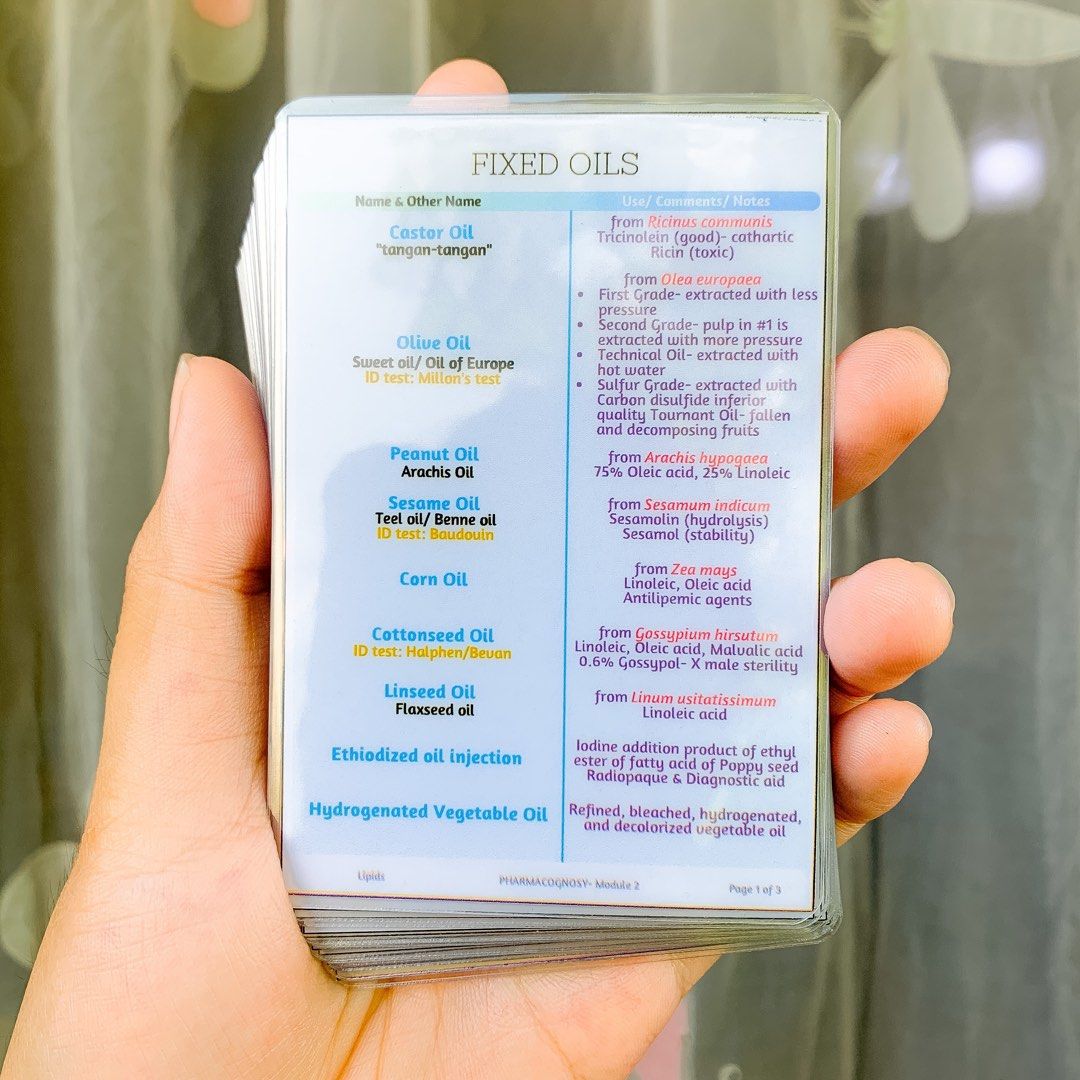 FIXED OILS
Name & Other Name
Use/ Comments/ Notes
Castor Oil
"tangan-tangan"
from Ricinus communis
Tricinolein (good)- cathartic
Ricin (toxic)
Olive Oil
Sweet oil/ Oil of Europe
ID test: Millon's test
from Olea europaea
• First Grade- extracted with less
pressure
• Second Grade- pulp in #1 is
extracted with more pressure
• Technical Oil- extracted with
hot water
• Sulfur Grade- extracted with
Carbon disulfide inferior
quality Tournant Oil- fallen
and decomposing fruits
Peanut Oil
Arachis Oil
from Arachis hypogaea
75% Oleic acid, 25% Linoleic
Sesame Oil
Teel oil/ Benne oil
ID test: Baudouin
from Sesamum indicum
Sesamolin (hydrolysis)
Sesamol (stability)
Corn Oil
from Zea mays
Linoleic, Oleic acid
Antilipemic agents
Cottonseed Oil
ID test: Halphen/Bevan
from Gossypium hirsutum
Linoleic, Oleic acid, Malvalic acid
0.6% Gossypol- X male sterility
Linseed Oil
Flaxseed oil
from Linum usitatissimum
Linoleic acid
Ethiodized oil injection
Iodine addition product of ethyl
ester of fatty acid of Poppy seed
Radiopaque & Diagnostic aid
Hydrogenated Vegetable Oil
Refined, bleached, hydrogenated,
and decolorized vegetable oil
Lipids
PHARMACOGNOSY- Module 2
Page 1 of 3